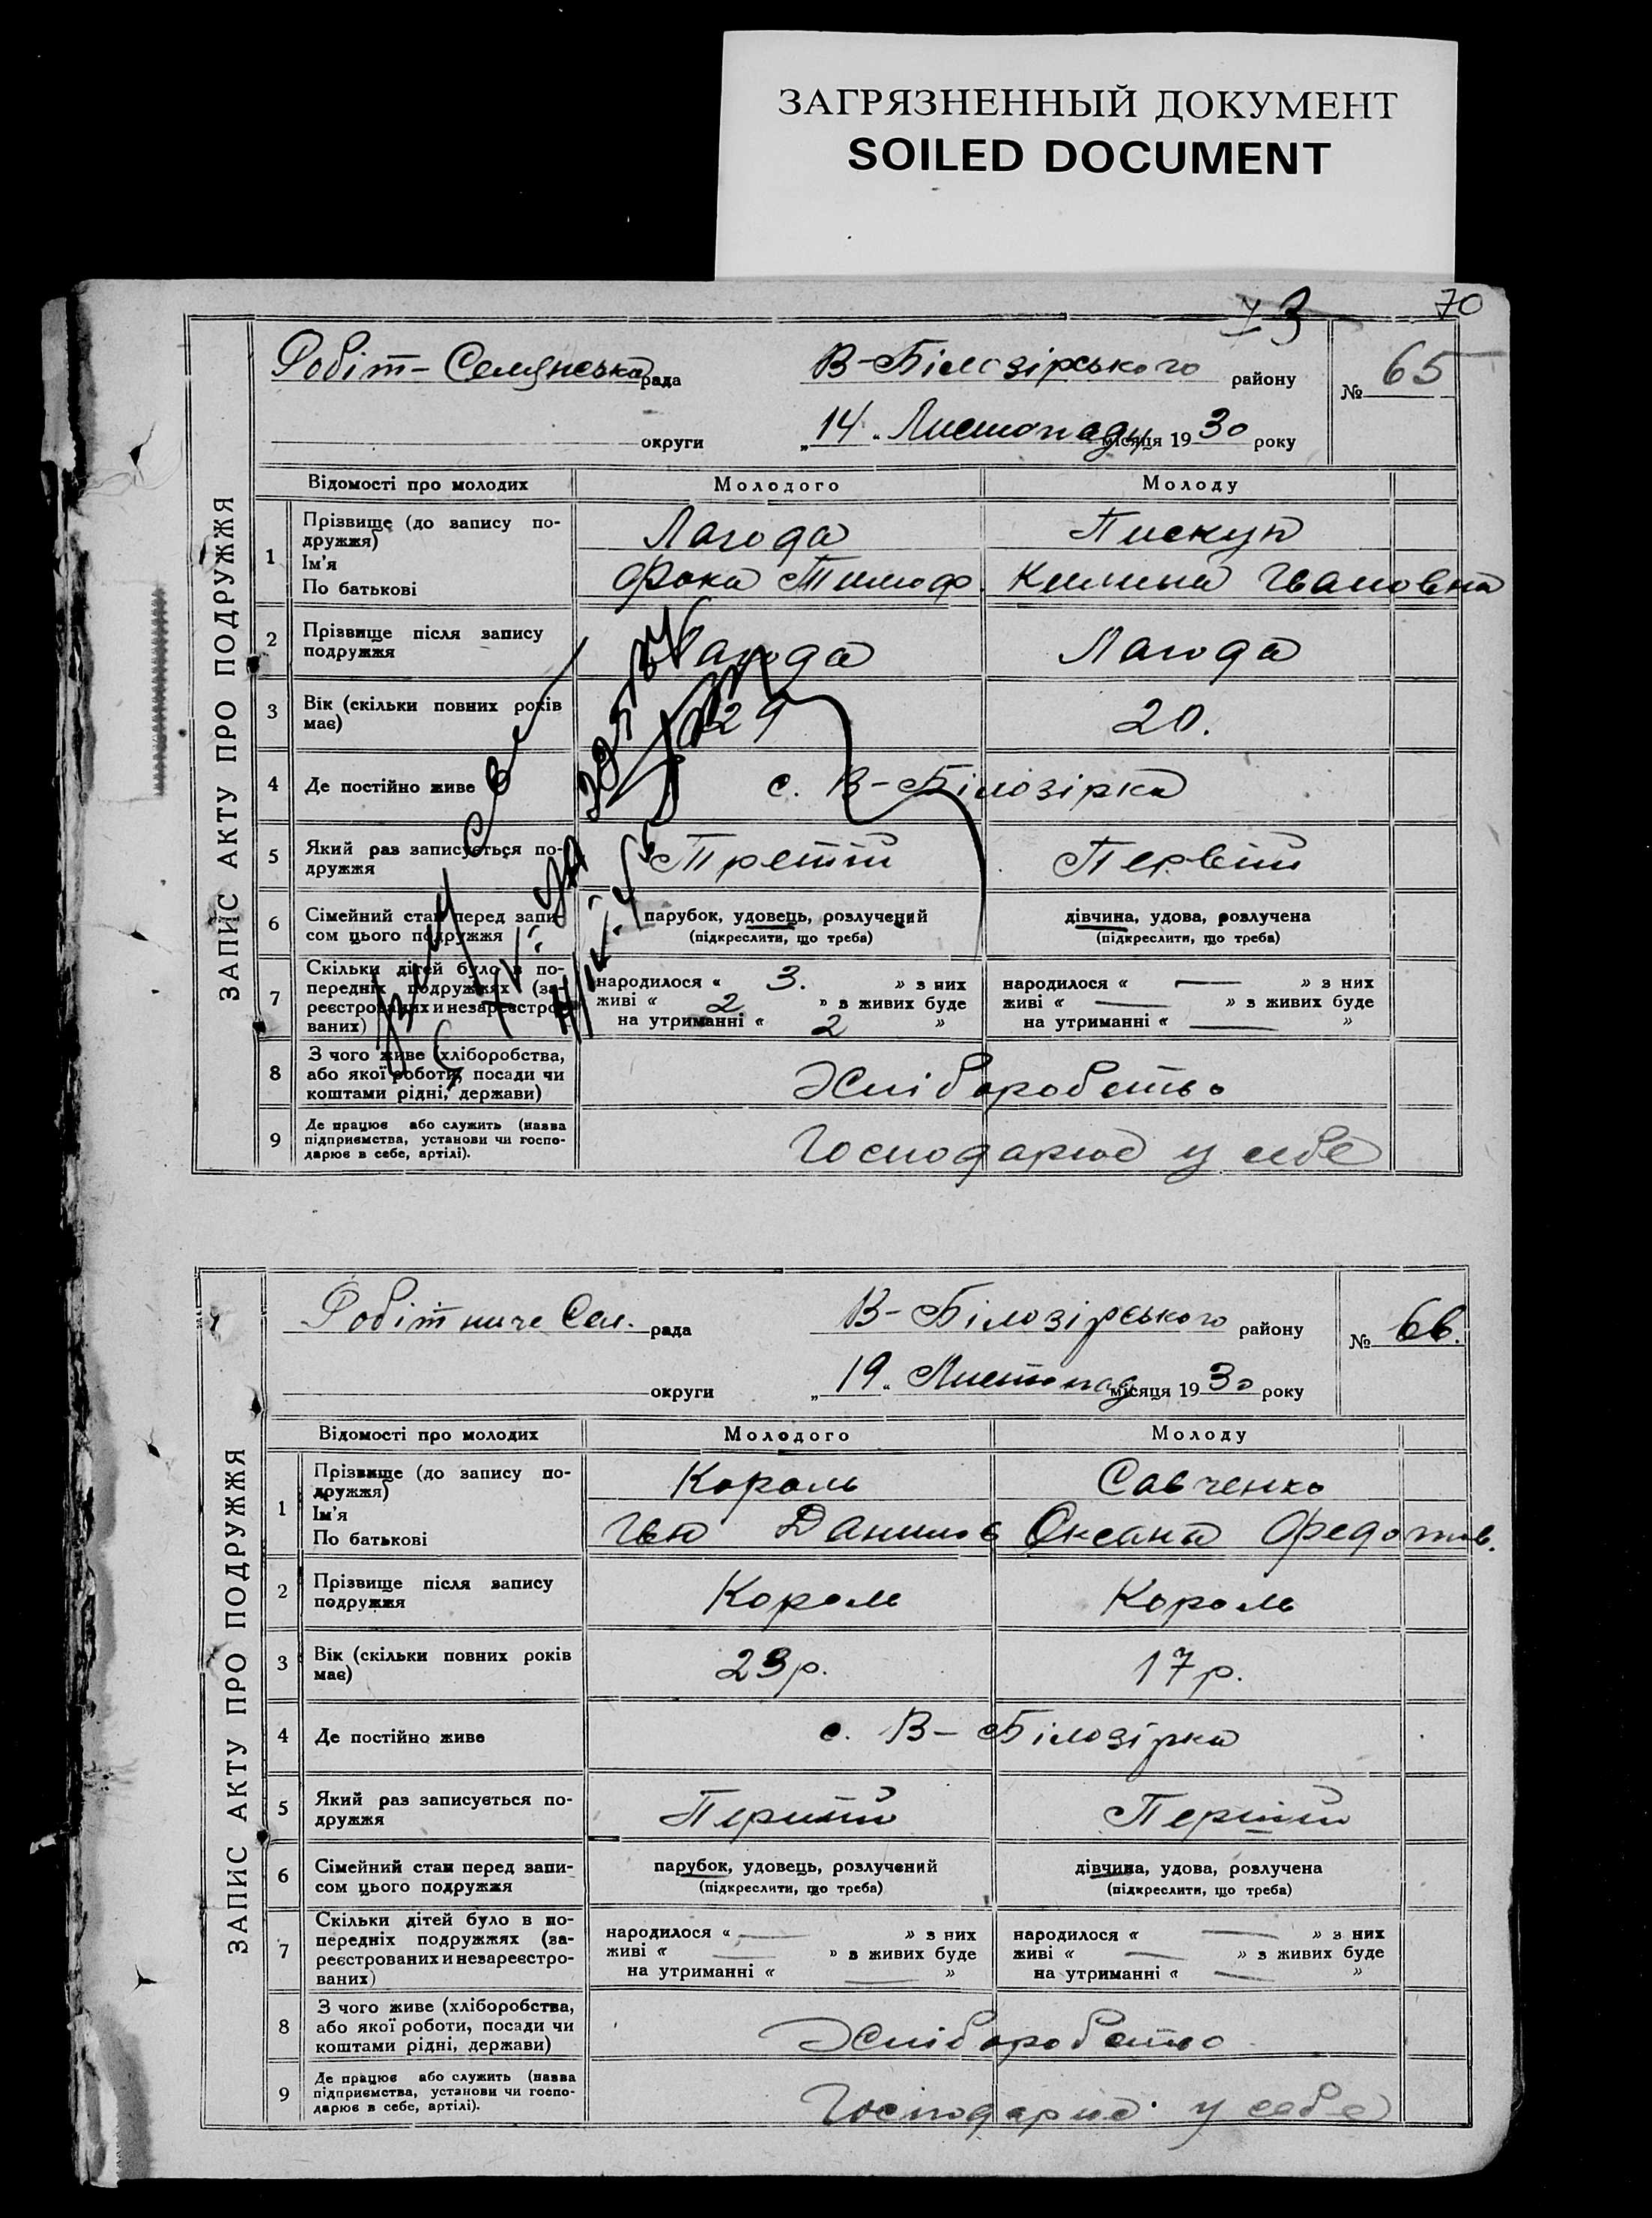 ЗАГРЯЗНЕННЫЙ ДОКУМЕНТ
SOILED DOCUMENT
70
ЗАПИС АКТУ ПРО ПОДРУЖЖЯ
Робіт-Селянська рада В-Білозірського району № 65
округи „14“ Листопаду місяця 1930 року
Відомості про молодих Молодого Молоду
1 Прізвище (до запису по-
дружжя) Лагода Пискун
Ім'я
По батькові Фока Тимоф. Килина Івановна
2 Прізвище після запису
подружжя Лагода Лагода
3 Вік (скільки повних років
має) 29 20.
4 Де постійно живе с. В-Білозірка
5 Який раз записується по-
дружжя Третій Первій
6 Сімейний стан перед запи-
сом цього подружжя
парубок, удовець, розлучений
(підкреслити, що треба)
дівчина, удова, розлучена
(підкреслити, що треба)
7 Скільки дітей було в по-
передніх подружжях (за-
реєстрованих и незареєстро-
ваних)
народилося « 3. » з них
живі « 2 » з живих буде
на утриманні « 2 »
народилося « — » з них
живі « — » з живих буде
на утриманні « — »
8 З чого живе (хліборобства,
або якої роботи, посади чи
коштами рідні, держави) Хліборобство
9 Де працює або служить (назва
підприємства, установи чи госпо-
дарює в себе, артілі). Господарює у себе
ЗАПИС АКТУ ПРО ПОДРУЖЖЯ
Робітниче Сел. рада В-Білозірського району № 66.
округи „19“ Листопад місяця 1930 року
Відомості про молодих Молодого Молоду
1 Прізвище (до запису по-
дружжя) Король Савченко
Ім'я
По батькові Данилов Оксана Федотов.
2 Прізвище після запису
подружжя Король Король
3 Вік (скільки повних років
має) 23р. 17р.
4 Де постійно живе с. В-Білозірка
5 Який раз записується по-
дружжя Перший Перший
6 Сімейний стан перед запи-
сом цього подружжя
парубок, удовець, розлучений
(підкреслити, що треба)
дівчина, удова, розлучена
(підкреслити, що треба)
7 Скільки дітей було в по-
передніх подружжях (за-
реєстрованих и незареєстро-
ваних)
народилося « — » з них
живі « — » з живих буде
на утриманні « — »
народилося « — » з них
живі « — » з живих буде
на утриманні « — »
8 З чого живе (хліборобства,
або якої роботи, посади чи
коштами рідні, держави) Хліборобство
9 Де працює або служить (назва
підприємства, установи чи госпо-
дарює в себе, артілі). Господарює у себе